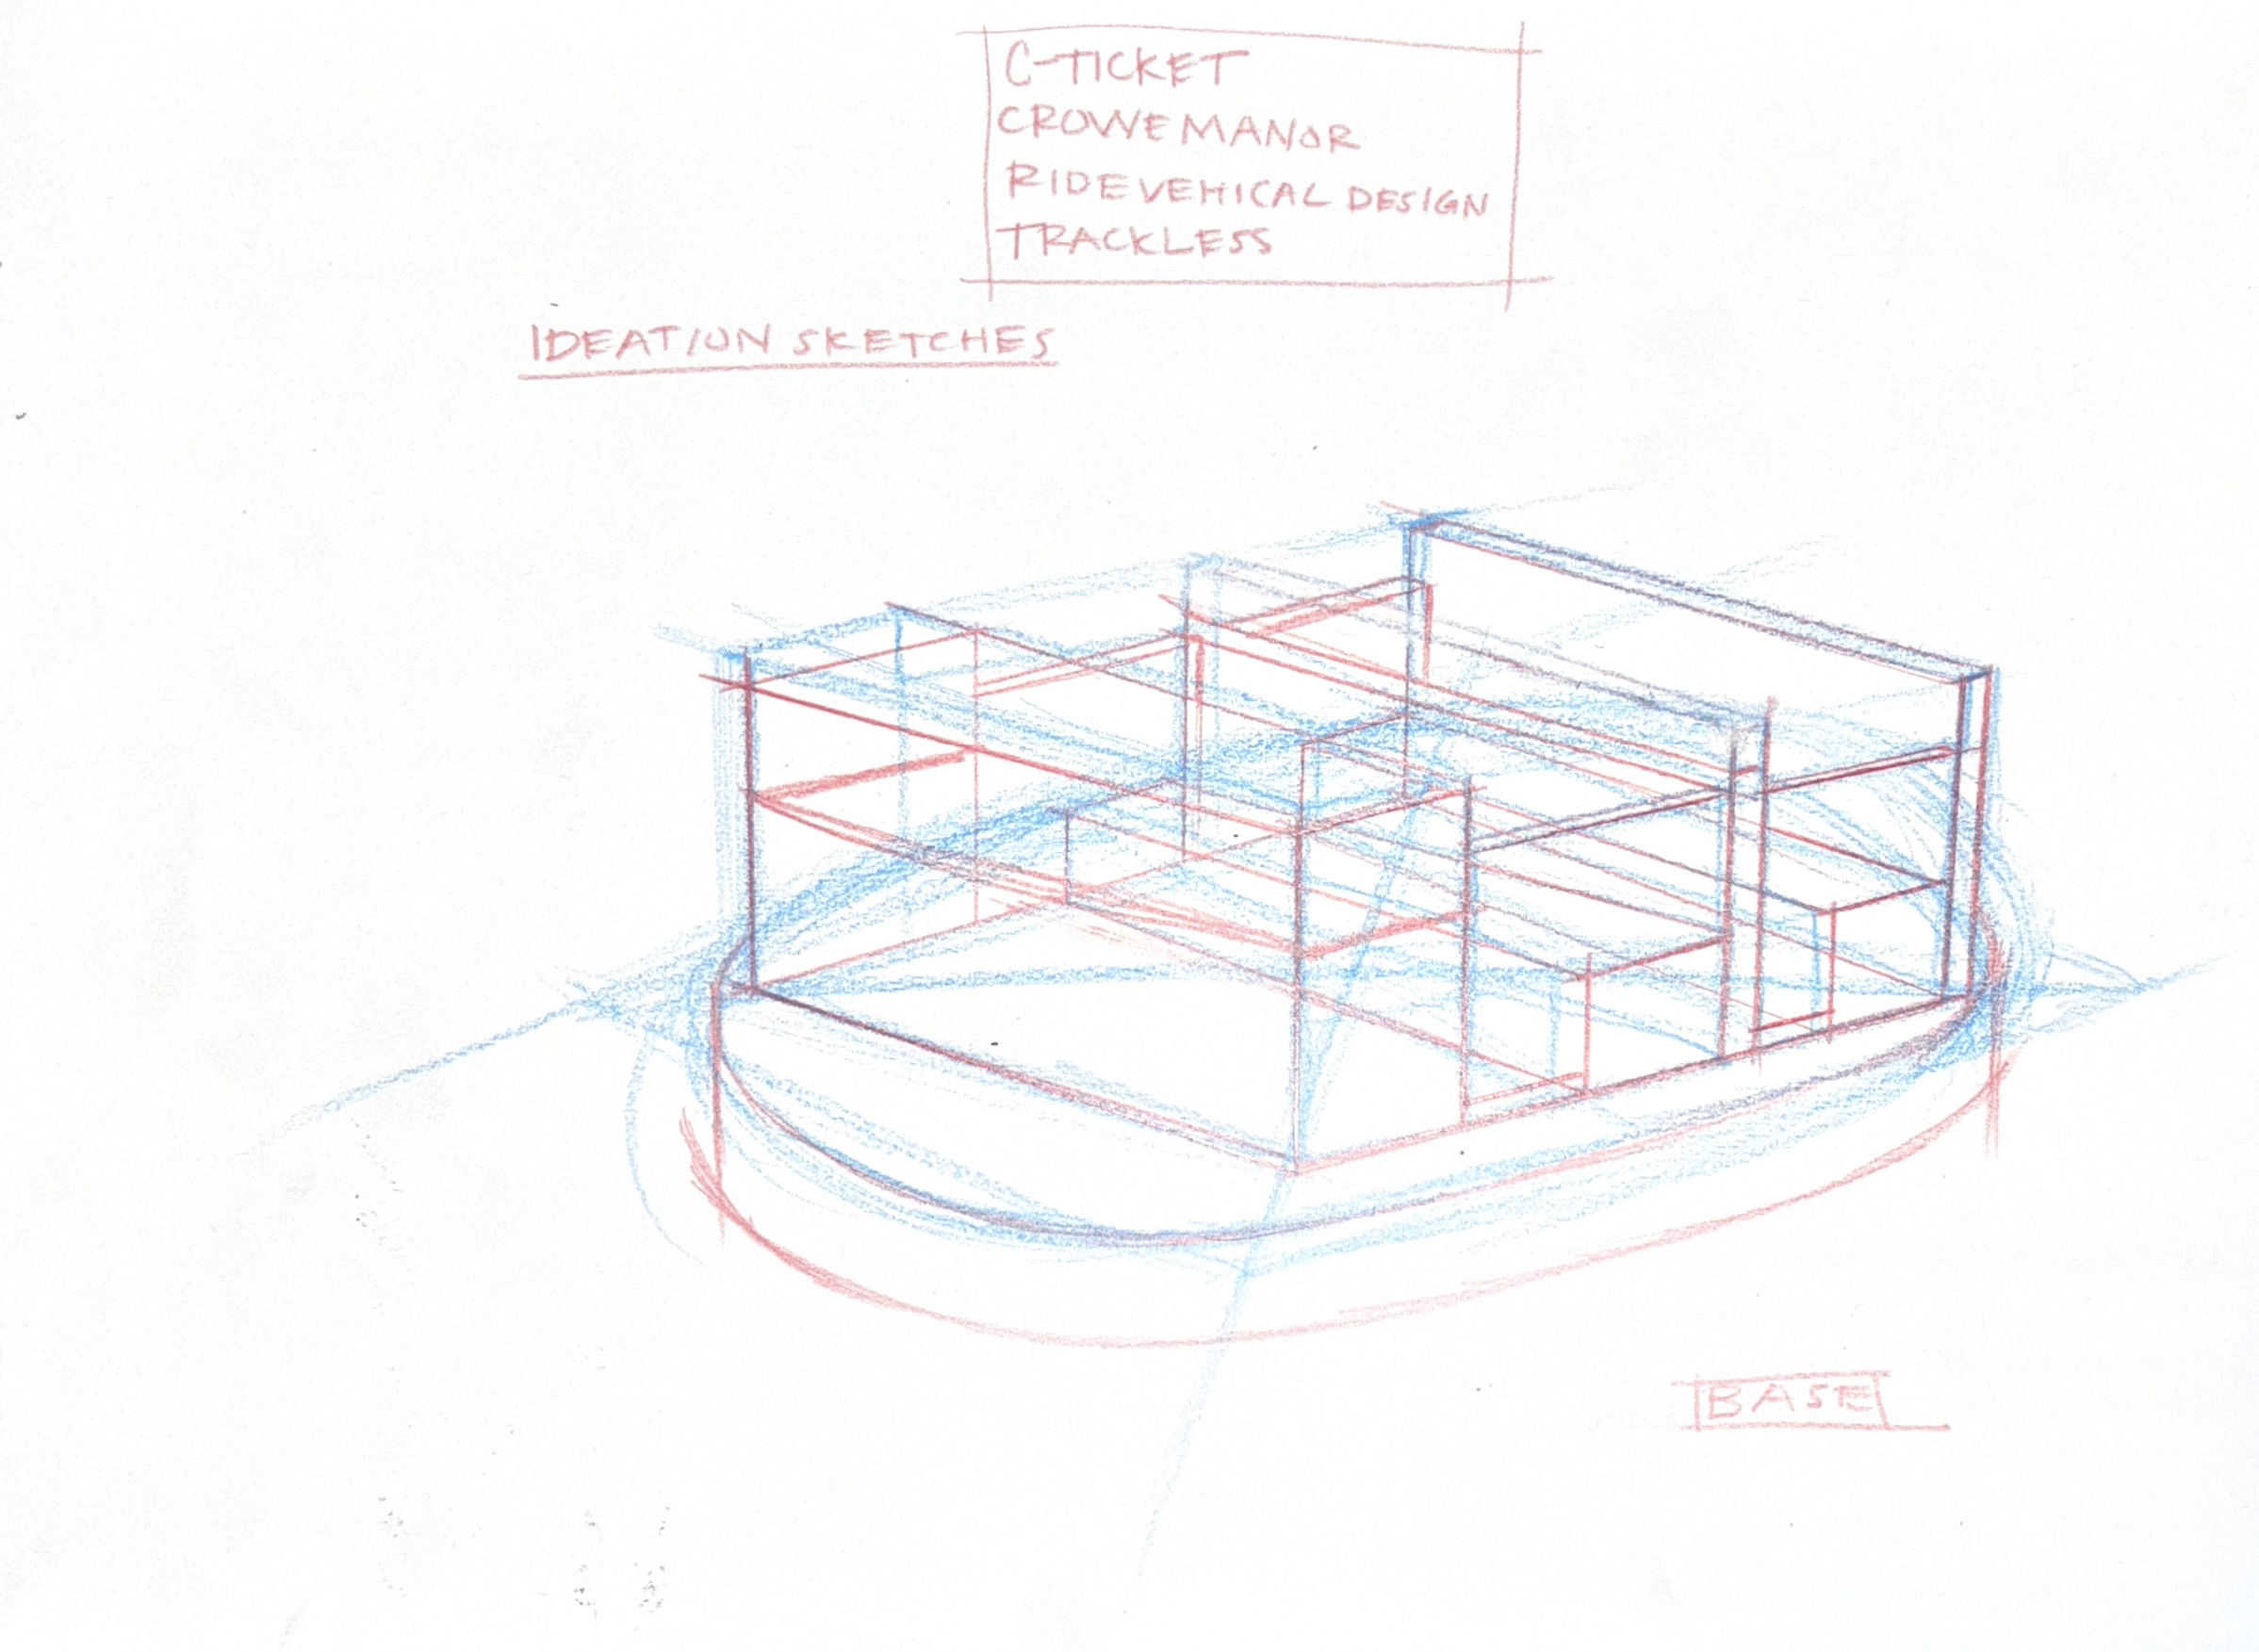 C-TICKET
CROWE MANOR
RIDE VEHICAL DESIGN
TRACKLESS
IDEATION SKETCHES
BASE